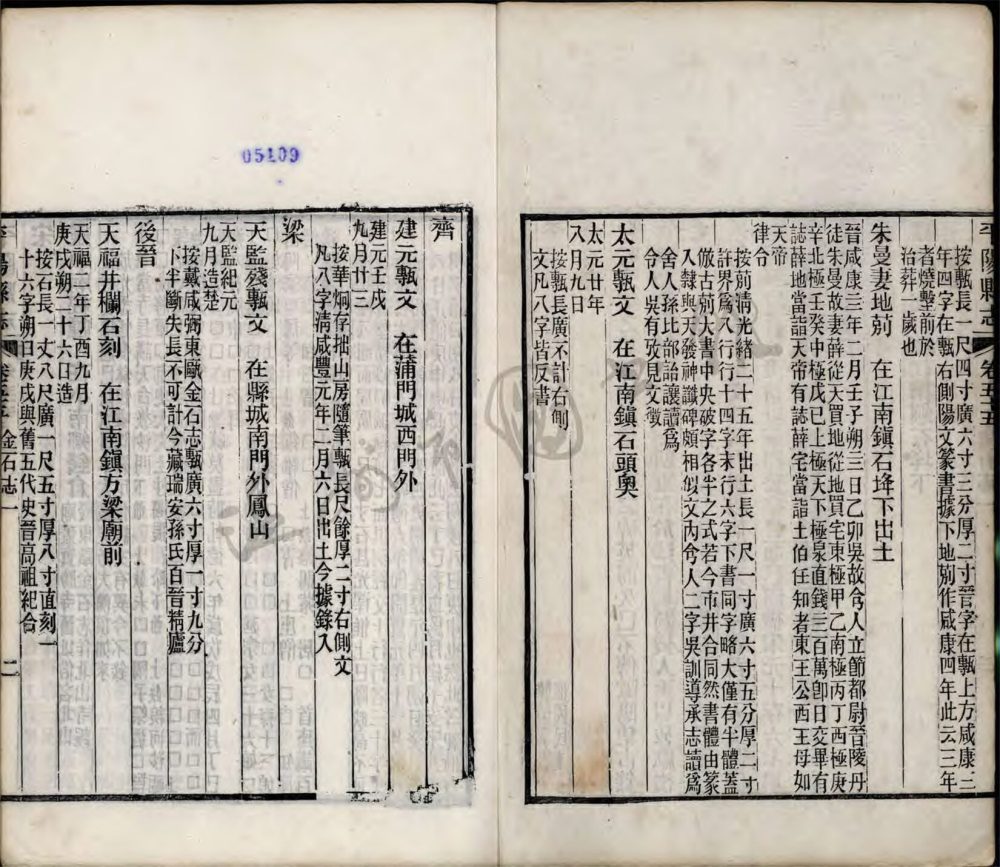 平陽縣志 卷五十五
按甎長一尺四寸廣六寸三分厚二寸晉字在甎上方咸康三
年四字在甎右側陽文篆書據下地莂作咸康四年此云三年
者燒墼前於
治葬一歲也
朱曼妻地莂 在江南鎮石埄下出土
晉咸康三年二月壬子朔三日乙卯吳故舍人立節都尉晉陵丹
徒朱曼故妻薛從天買地從地買宅東極甲乙南極丙丁西極庚
辛北極壬癸中極戊巳上極天下極泉直錢三百萬卽日交畢有
誌薛地當詣天帝有誌薛宅當詣土伯任知者東王公西王母如
天帝
律令
按莂清光緒二十五年出土長一尺一寸廣六寸五分厚二寸
許界爲八行行十四字末行六字下書同字略大僅有半體蓋
倣古莂大書中央破字各半之式若今市井合同然書體由篆
入隸與天發神讖碑頗相似文內舍人二字吳訓導承志讀爲
舍人孫比部詒讓讀爲
令人吳有攷見文徵
太元甎文 在江南鎮石頭奧
太元廿年
八月九日
按甎長廣不計右側
文凡八字皆反書
齊
建元甎文 在蒲門城西門外
建元壬戌
九月廿三
按華炯存拙山房隨筆甎長尺餘厚二寸右側文
凡八字清咸豐元年二月六日出土今據錄入
梁
天監殘甎文 在縣城南門外鳳山
天監紀元
九月造楚
按戴咸弼東甌金石志甎廣六寸厚一寸九分
下半斷失長不可計今藏瑞安孫氏百晉精廬
後晉
天福井欄石刻 在江南鎮方梁廟前
天福二年丁酉九月
庚戌朔二十六日造
按石長一丈八尺廣一尺五寸厚八寸直刻一
十六字朔日庚戌與舊五代史晉高祖紀合
平陽縣志 卷五十五 金石志一 二
05109